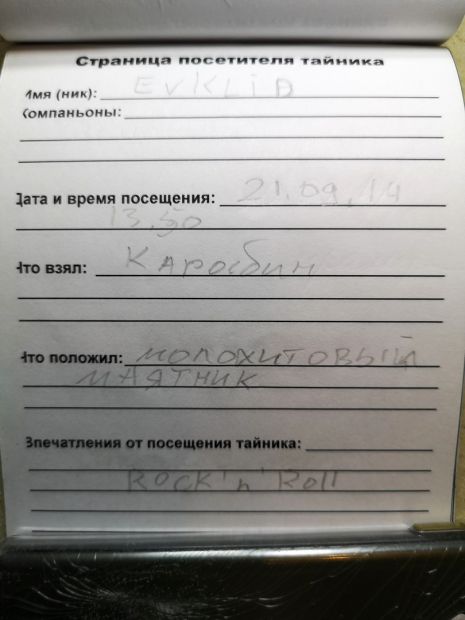 Страница посетителя тайника
Имя (ник): EVKLID
Компаньоны:
Дата и время посещения: 21.09.14
13.50
Что взял: Карабин
Что положил: молохитовый
маятник
Впечатления от посещения тайника:
Rock'n'Roll